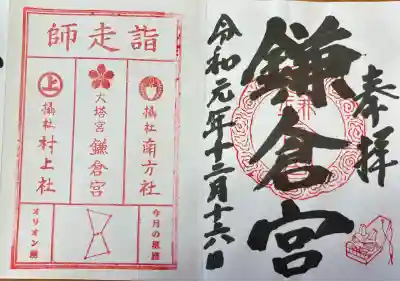 奉拝
鎌倉宮
令和元年十二月十六日
師走詣
攝社 南方社
大塔宮 鎌倉宮
上
攝社 村上社
今月の星座
オリオン座